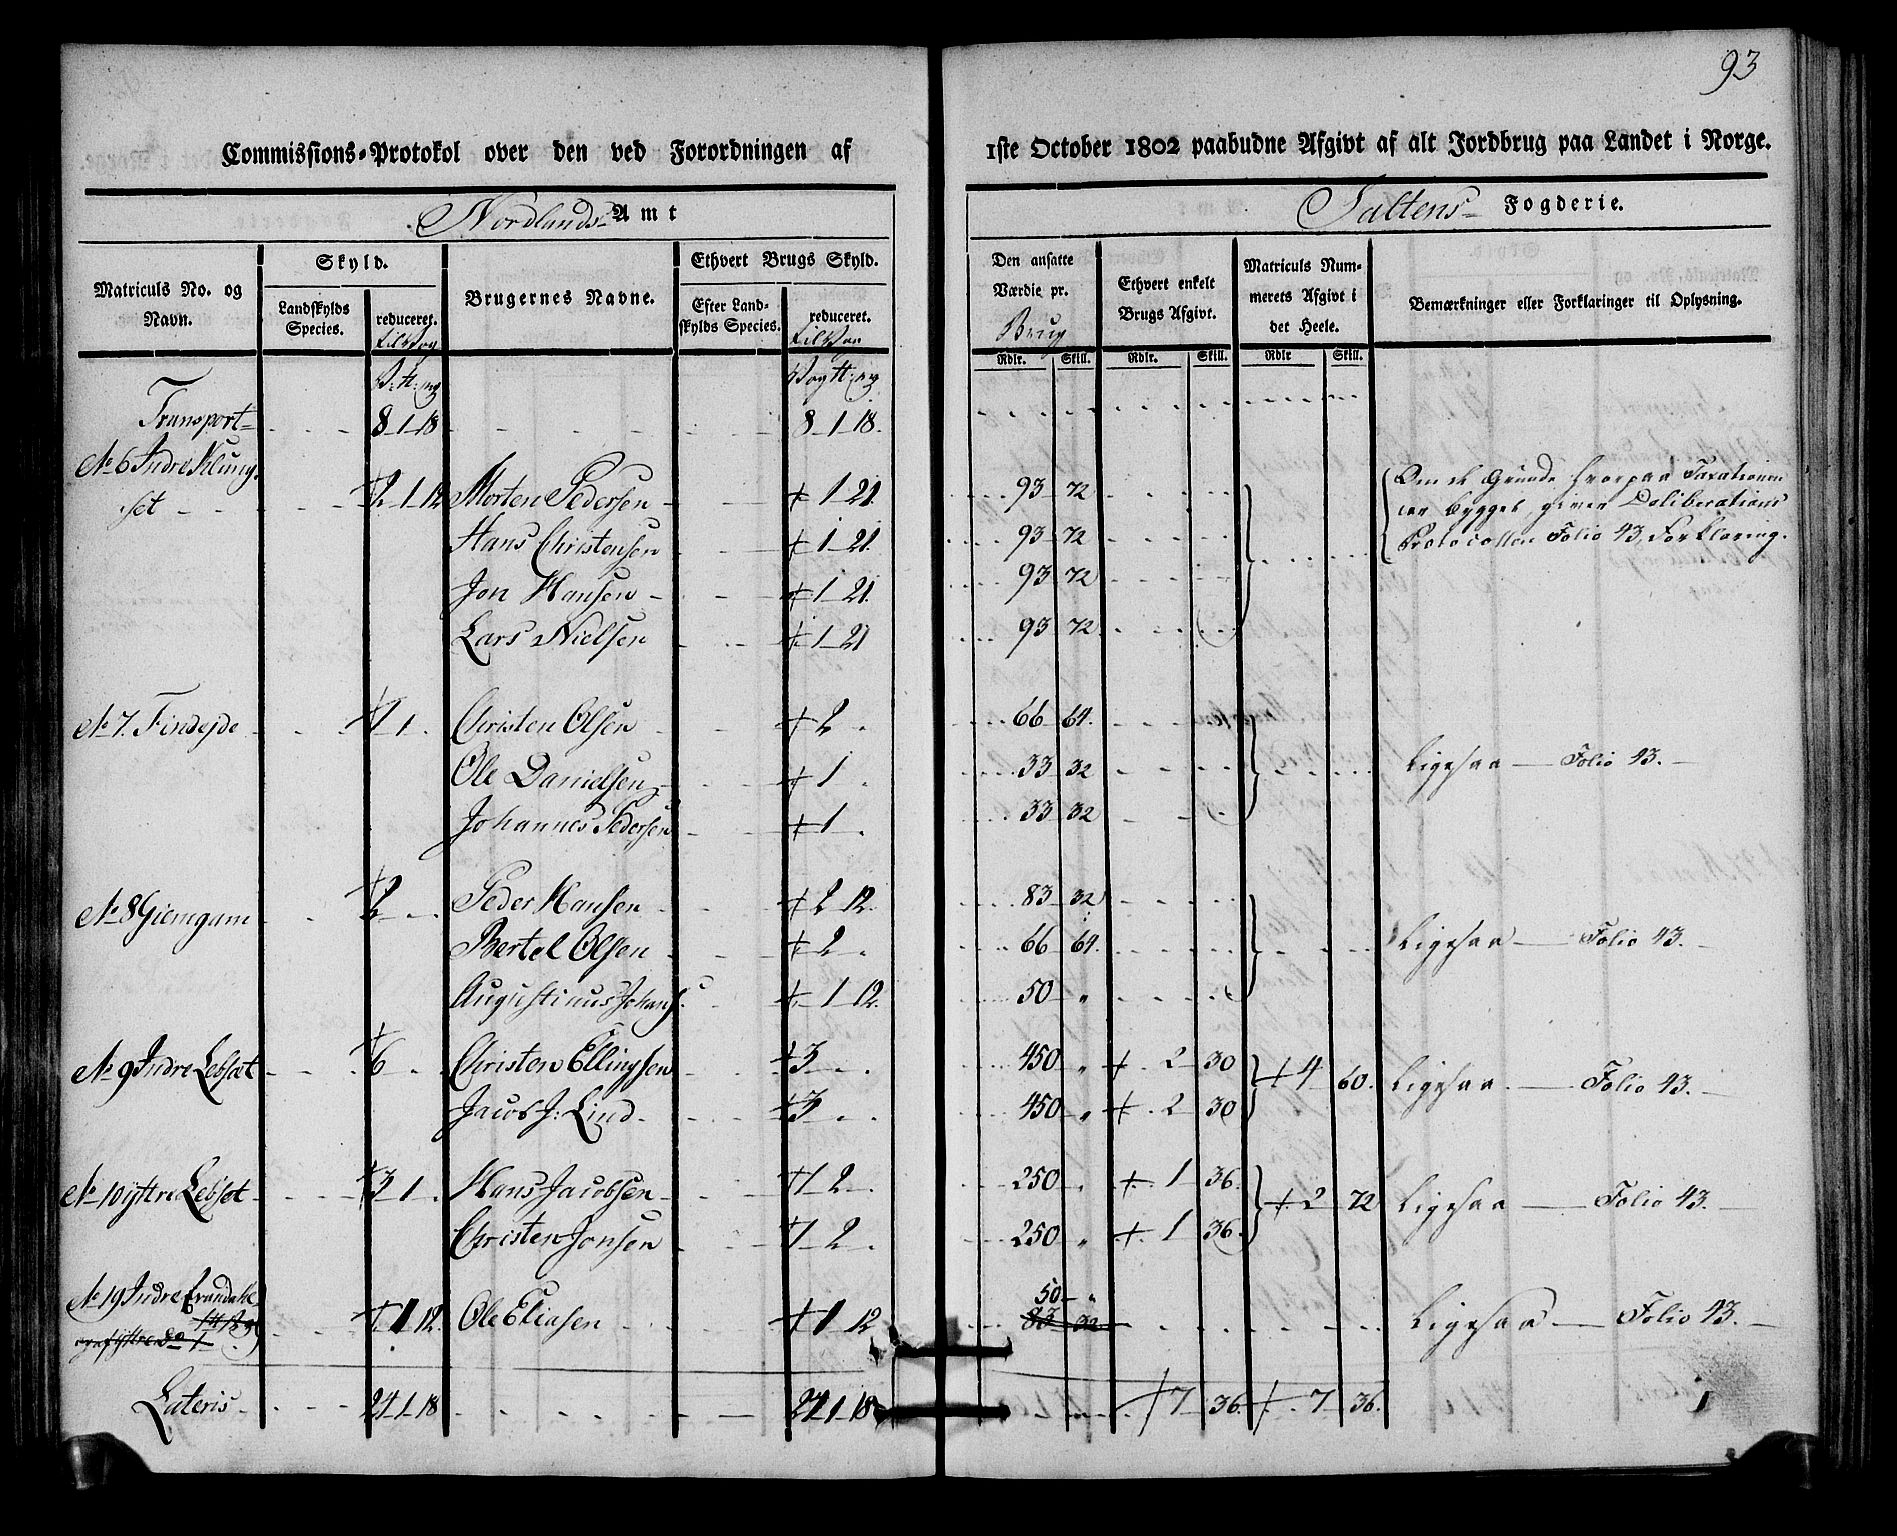 93
Commissions-Protokol over den ved Forordningen af 1ste October 1802 paabudne Afgivt af alt Jordbrug paa Landet i Norge.
Nordlands Amt Saltens Fogderie.
Matriculs No. og Navn.
Skyld.
Landskylds Species.
reduceret. til Vog
Brugernes Navne.
Ethvert Brugs Skyld.
Efter Landskylds Species.
reduceret. til Vog
Den ansatte Værdie pr. Brug
Rdlr. Skill.
Ethvert enkelt Brugs Afgivt.
Rdlr. Skill.
Matriculs Nummerets Afgivt i det Heele.
Rdlr Skill.
Bemærkninger eller Forklaringer til Oplysning.
Transport 8 1 18 8 1 18.
No 6 Indre Klungset 2 1 12 Morten Pedersen 1 21 93 72 Om de Grunde hvorpaa Taxationen
er bygget, giver Deliberations
Protocollen Folio 43, Forklaring.
Hans Christensen 1 21. 93 72
Jon Hansen 1 21. 93 72
Lars Nielsen 1 21 93 72
No 7. Finseyde 1 1 Christen Olsen 2 66 64. Ligesaa Folio 43.
Ole Danielsen 1 33 32
Johannes Pedersen 1 33 32
No 8 Giemgam 2 Peder Hansen 2 12. 83 32 Ligesaa Folio 43.
Bertel Olsen 2 66 64.
Augustinus Johans: 1 12. 50 "
No 9 Indre Lebset 6 Christen Ellingsen 3 450 " 2 30 4 60. Ligesaa Folio 43.
Jacob J: Lind 3 450 " 2 30
No 10 yttre Lebset 3 1 Hans Jacobsen 1 2 250 " 1 36. 2 72 Ligesaa Folio 43.
Christen Jonsen 1 2 250 " 1 36.
No 19 Indre 1 12. Ole Eliasen 1 12 50 " 83 32 Ligesaa Folio 43.
Lateris 24 1 18 24 1 18 7 36. 7 36.